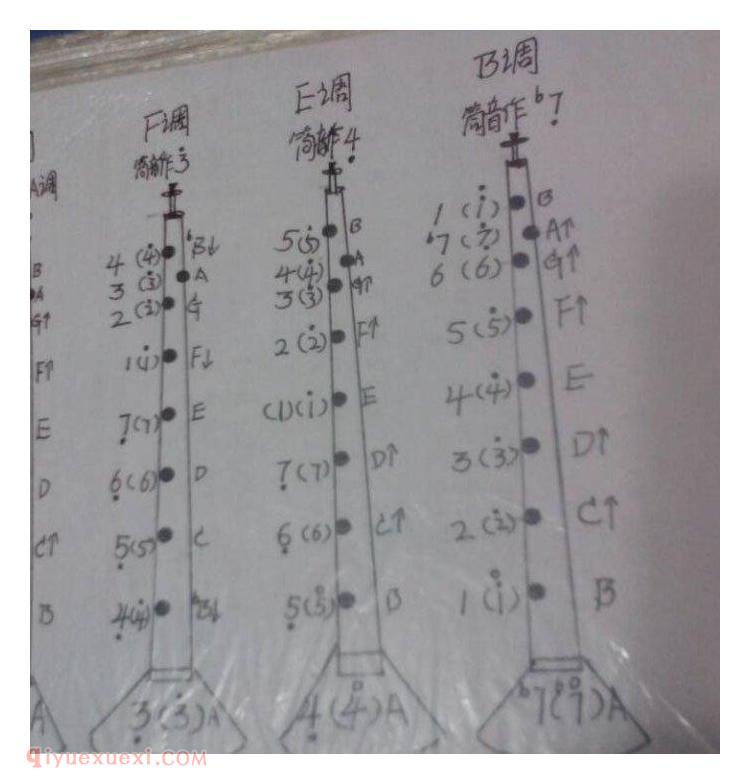 A调
B
A
G↑
F↑
E
D
C↑
B
A
F调
筒音作3̇
4 (4̇) ᵇB↓
3 (3̇) A
2 (2̇) G
1 (1̇) F↓
7̣ (7) E
6̣ (6) D
5̣ (5) C
4̣ (4̇) ᵇB↓
3̣ (3̇) A
E调
筒音作4̣
5 (5̇) B
4 (4̇) A
3 (3̇) G↑
2 (2̇) F↑
(1) (1̇) E
7̣ (7) D↑
6̣ (6) C↑
5̣ (5̇) B
4̣ (4̇) A
B调
筒音作ᵇ7̣
1 (1̇) B
ᵇ7 (7̇) A↑
6 (6̇) G↑
5 (5̇) F↑
4 (4̇) E
3 (3̇) D↑
2 (2̇) C↑
1 (1̇) B
ᵇ7 (ᵇ7̇) A
qiyuexuexi.com